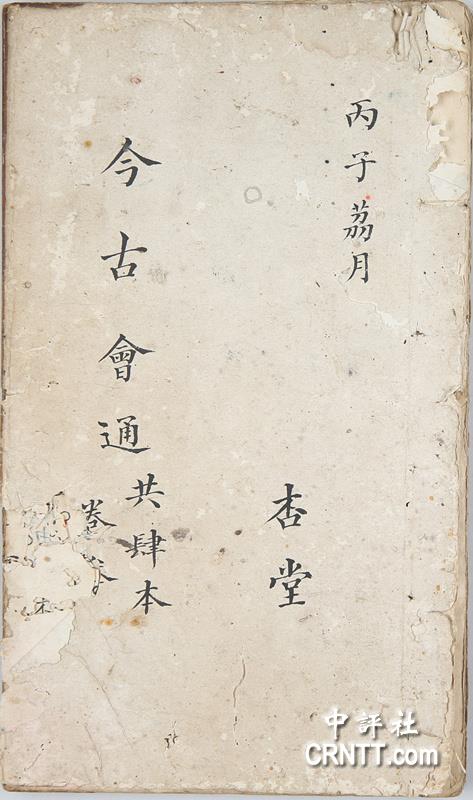 丙子荔月
杏堂
今古會通
共肆本
卷
中評社
CRNTT.com